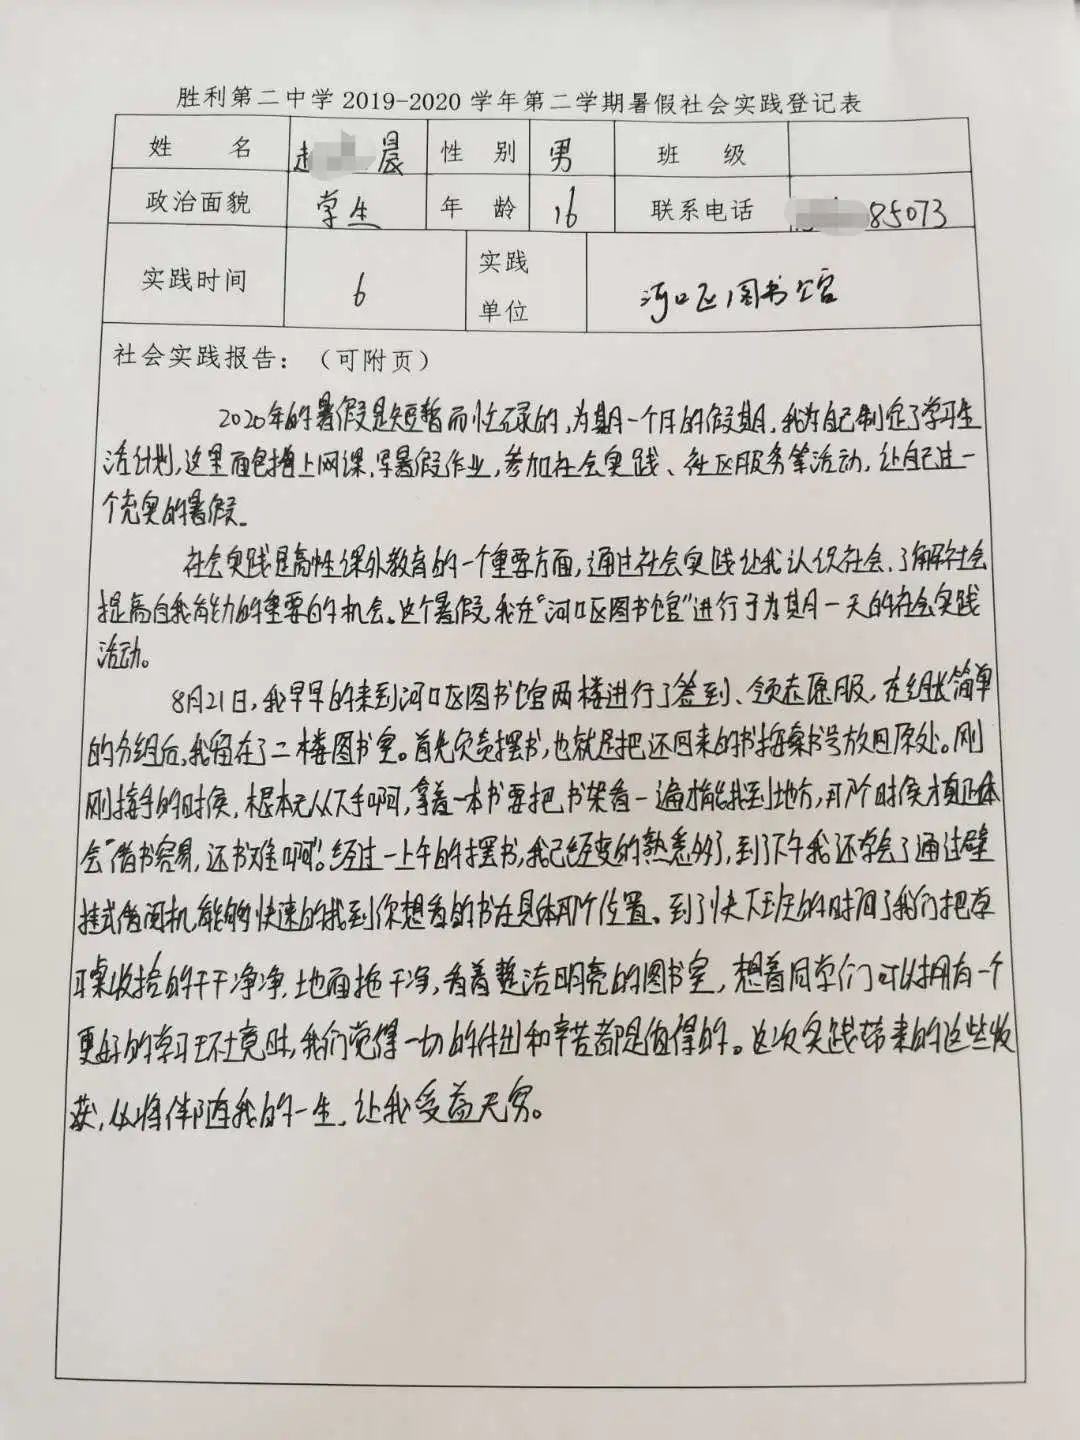 胜利第二中学2019-2020学年第二学期暑假社会实践登记表
姓 名 赵 晨 性 别 男 班 级
政治面貌 学生 年 龄 16 联系电话 85073
实践时间 6 实践单位 河口区图书馆
社会实践报告：（可附页）
2020年的暑假是短暂而忙碌的，为期一个月的假期，我为自己制定了学习生
活计划，这里面包括上网课，写暑假作业，参加社会实践、社区服务等活动，让自己过一
个充实的暑假。
社会实践是高性课外教育的一个重要方面，通过社会实践让我认识社会、了解社会
提高自我能力的重要的机会。这个暑假，我在“河口区图书馆”进行了为期一天的社会实践
活动。
8月21日，我早早的来到河口区图书馆两楼进行了签到、领志愿服，在组长简单
的分组后，我留在了二楼图书室。首先负责摆书，也就是把还回来的书按索书号放回原处。刚
刚接手的时候，根本无从下手啊，拿着一本书要把书架看一遍才能找到地方，那个时候才真正体
会“借书容易，还书难啊”。经过一上午的摆书，我已经变的熟悉多了，到了下午我还学会了通过壁
挂式借阅机，能够快速的找到你想看的书在具体那个位置。到了快下班的时间了我们把
桌收拾的干干净净，地面拖干净，看着整洁明亮的图书室，想着同学们可以拥有一个
更好的学习环境时，我们觉得一切的付出和辛苦都是值得的。这次实践带来的这些收
获，必将伴随我的一生，让我受益无穷。